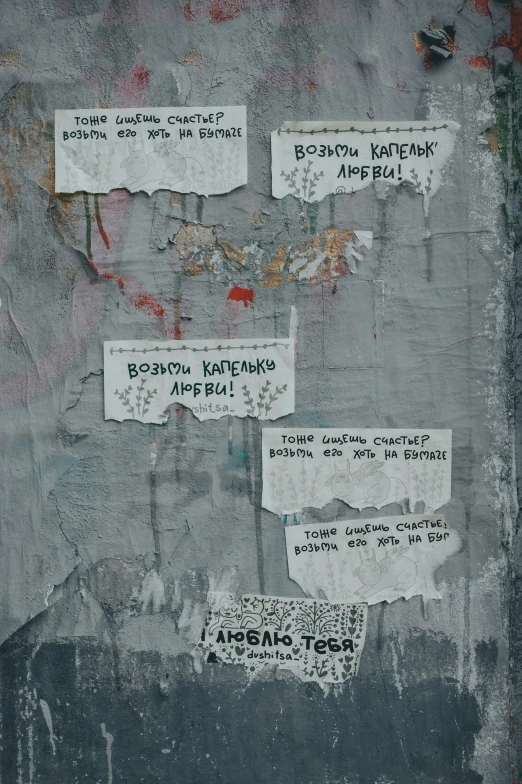 ТОЖЕ ИЩЕШЬ СЧАСТЬЕ?
ВОЗЬМИ ЕГО ХОТЬ НА БУМАГЕ
ВОЗЬМИ КАПЕЛЬК
ЛЮБВИ!
ВОЗЬМИ КАПЕЛЬКУ
ЛЮБВИ!
ushitsa_
ТОЖЕ ИЩЕШЬ СЧАСТЬЕ?
ВОЗЬМИ ЕГО ХОТЬ НА БУМАГЕ
ТОЖЕ ИЩЕШЬ СЧАСТЬЕ
ВОЗЬМИ ЕГО ХОТЬ НА БУМ
ЛЮБЛЮ ТЕБЯ
dushitsa_